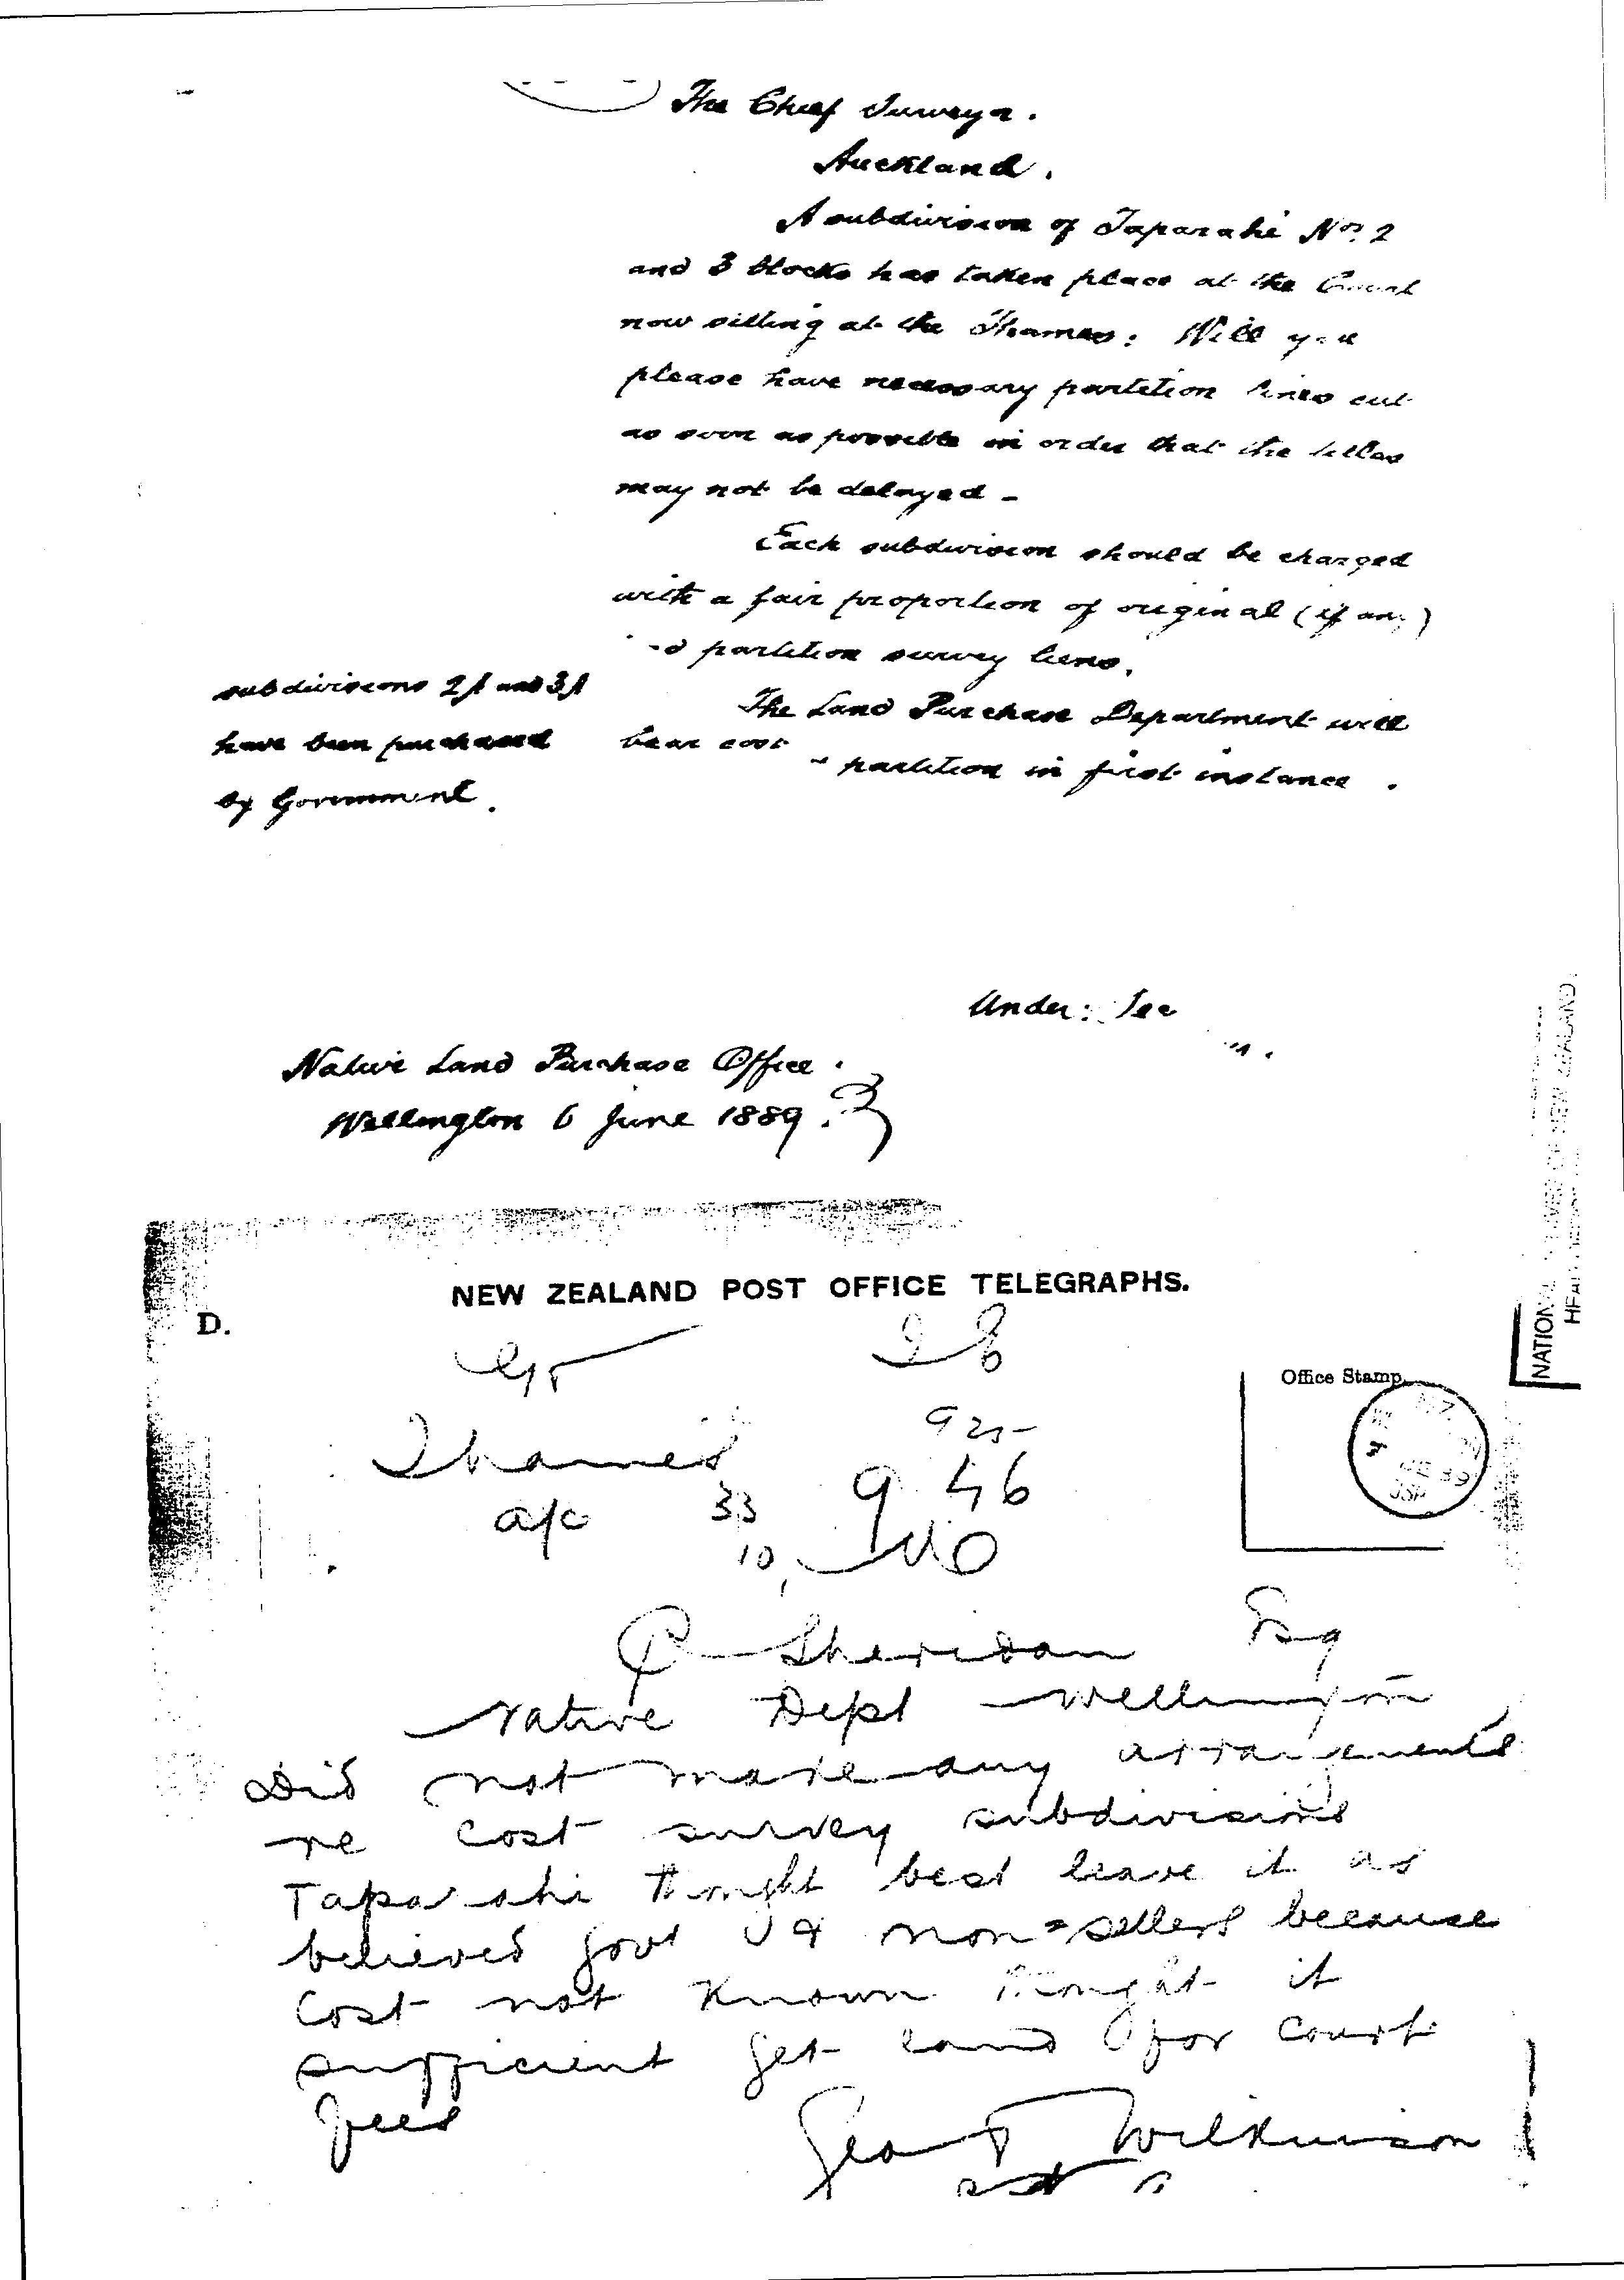 The Chief Surveyor.
Auckland.
A subdivision of Taparahi Nos. 2
and 3 blocks has taken place at the Court
now sitting at the Thames: Will you
please have necessary partition lines cut
as soon as possible in order that the titles
may not be delayed -
Each subdivision should be charged
with a fair proportion of original (if any)
partition survey liens.
The Land Purchase Department will
bear cost
partition in first instance.
subdivisions 2A and 3A
have been purchased
by Government.
Under: Sec
Native Land Purchase Office.
Wellington 6 June 1889.
NEW ZEALAND POST OFFICE TELEGRAPHS.
D.
Office Stamp.
Thames
925
a/c 33 9 46
10
P Sheridan Esq
Native Dept Wellington
Did not make any arrangements
re cost survey subdivisions
Taparahi thought best leave it as
between Govt & non-sellers because
cost not known thought it
sufficient get land for court
fees
Geo T Wilkinson
NATIONAL ARCHIVES OF NEW ZEALAND